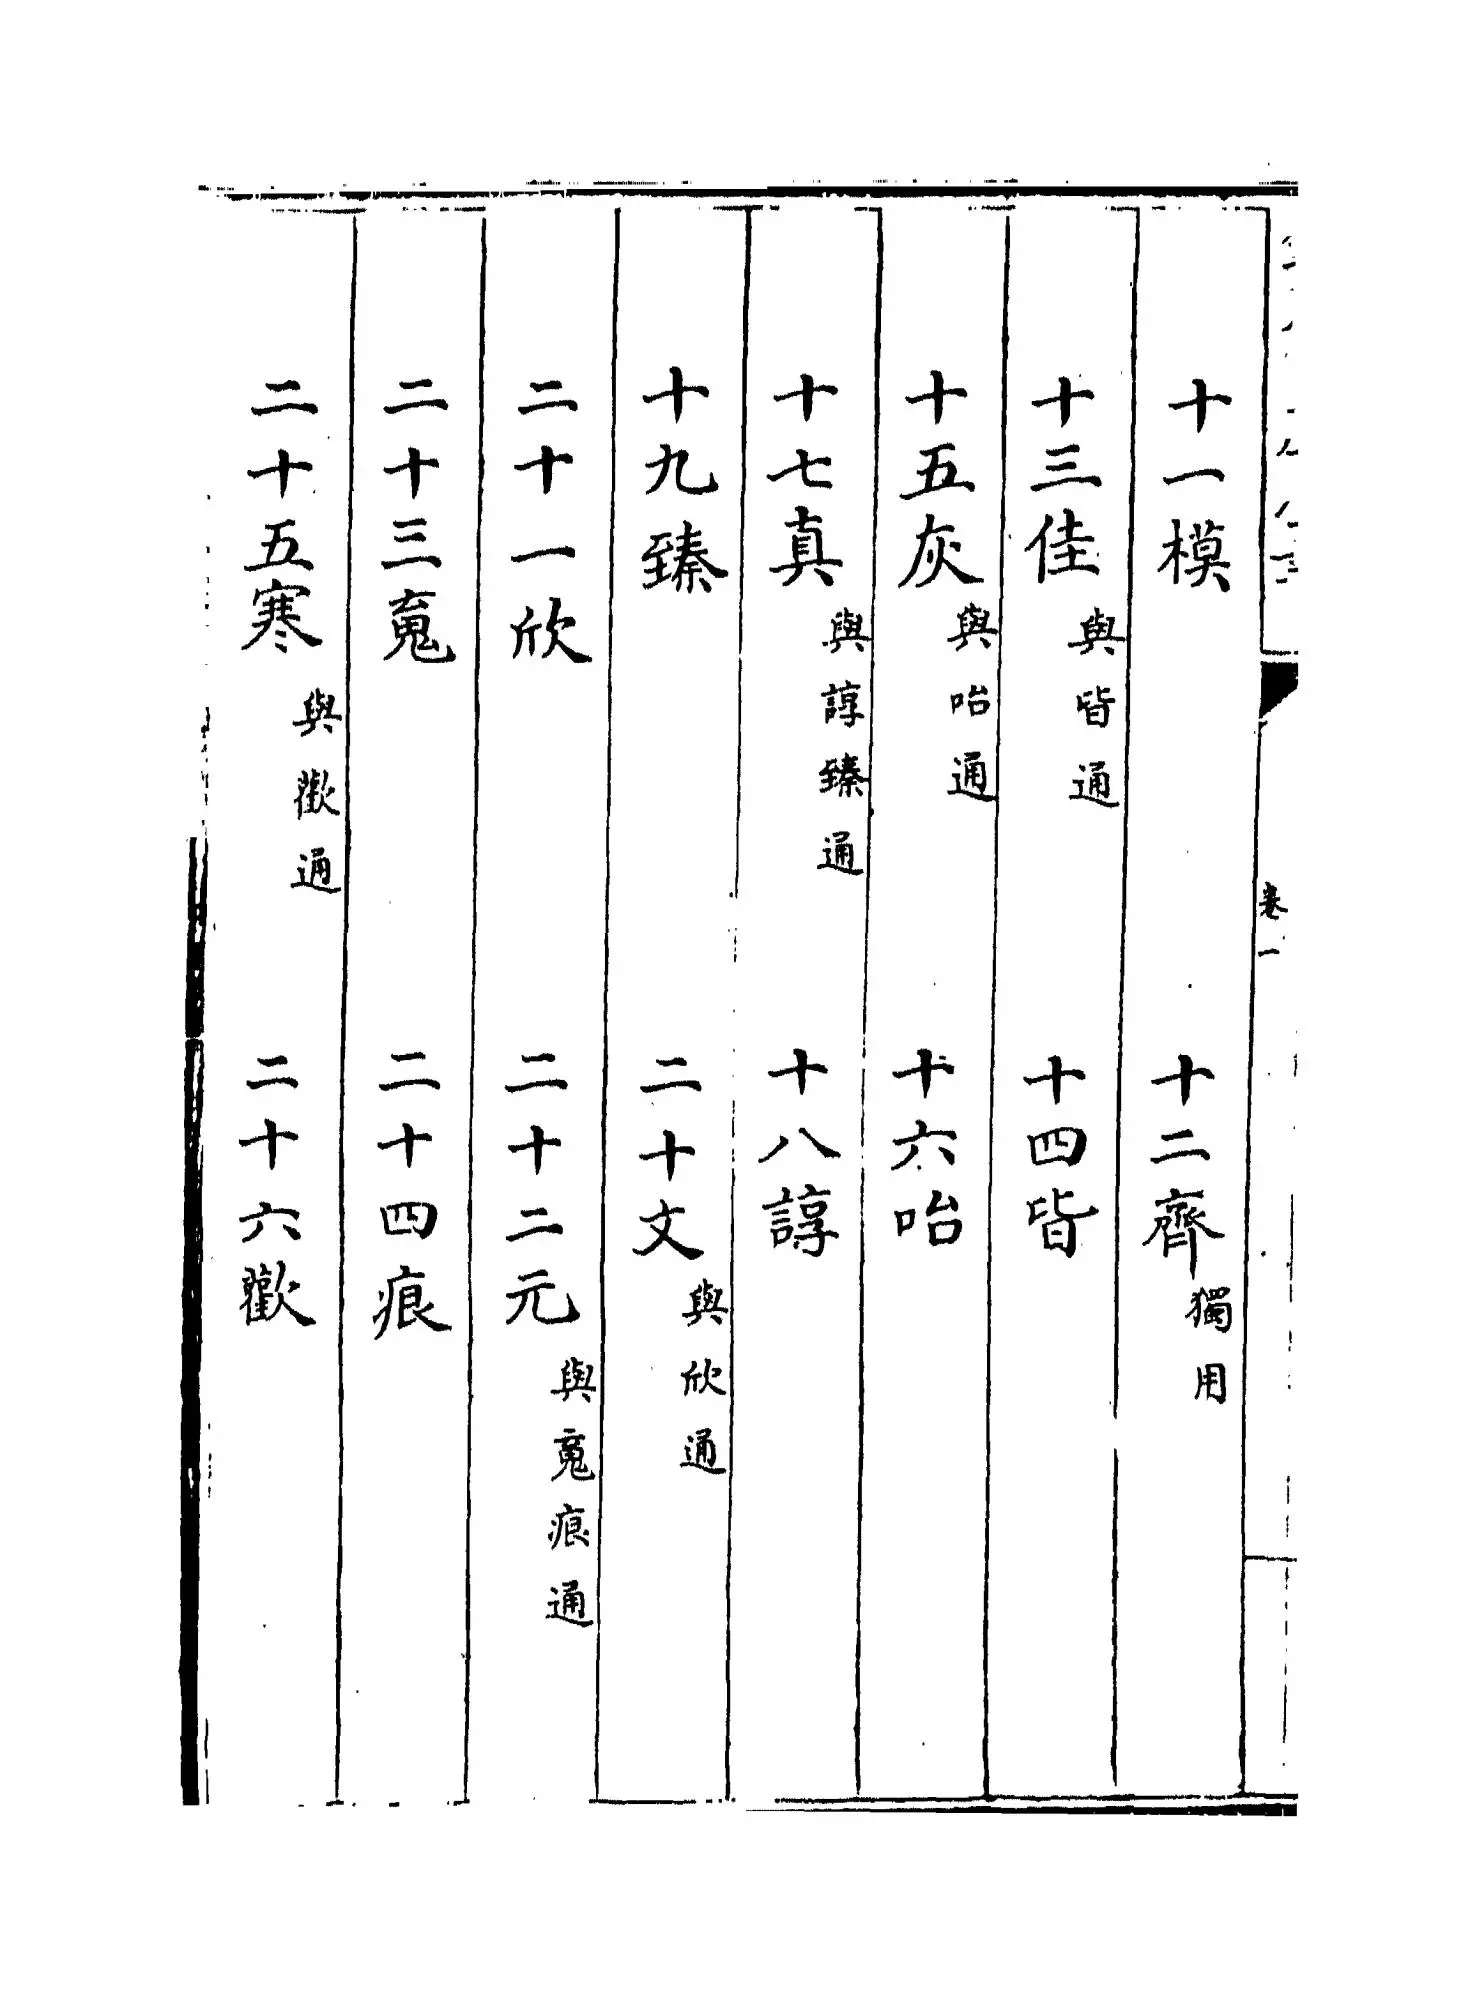 卷一
十一模　十二齊獨用
十三佳與皆通　十四皆
十五灰與咍通　十六咍
十七真與諄臻通　十八諄
十九臻　二十文與欣通
二十一欣　二十二元與䰟痕通
二十三䰟　二十四痕
二十五寒與歡通　二十六歡